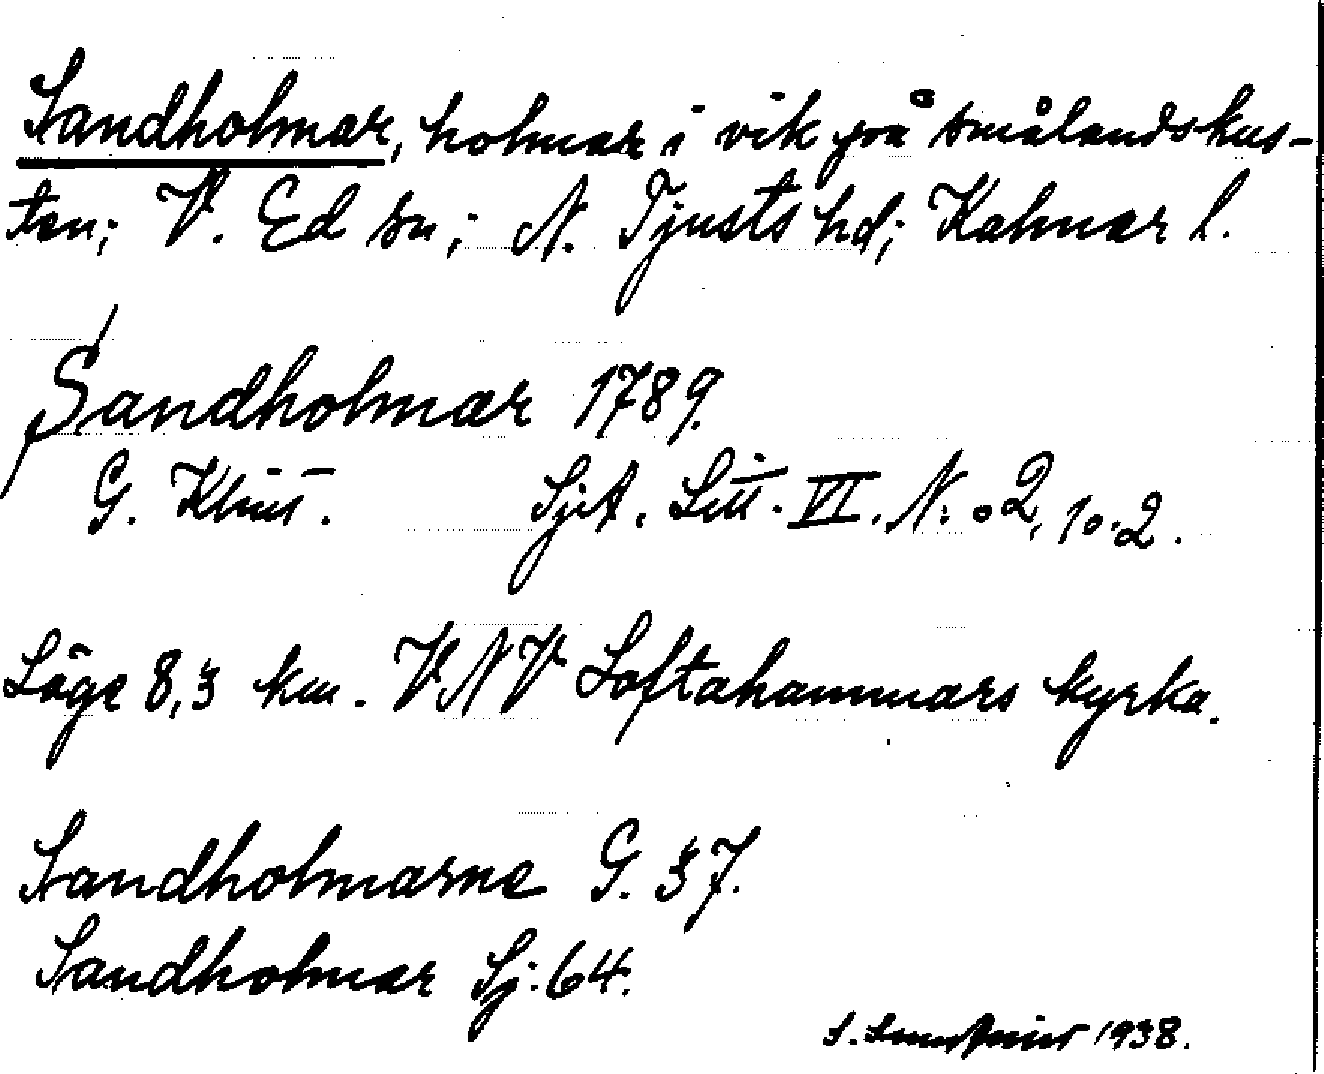 Sandholmar, holmar i vik på smålandskus-
ten; V. Ed sn; N. Tjusts hd; Kalmar l.
Sandholmar 1789.
G. Klint. SjA. Litt. VI. N:o 2, 10.2.
Läge 8,3 km. VNV Loftahammars kyrka.
Sandholmarne G. 37.
Sandholmar Sj: 64.
S. 1938.